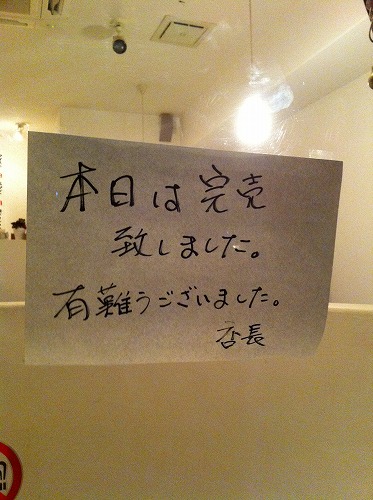 本日は完売
致しました。
有難うございました。
店長